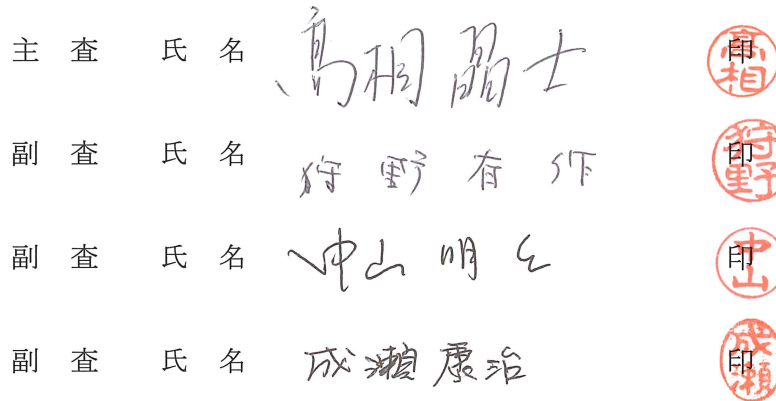 主 査 氏 名 髙相 晶士 印 高相
副 査 氏 名 狩野 有作 印 狩野
副 査 氏 名 中山 明 印 中山
副 査 氏 名 成瀬 康治 印 成瀬